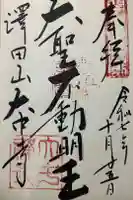 奉拝
令和七年
十月廿五日
大聖不動明王
澤田山大中寺